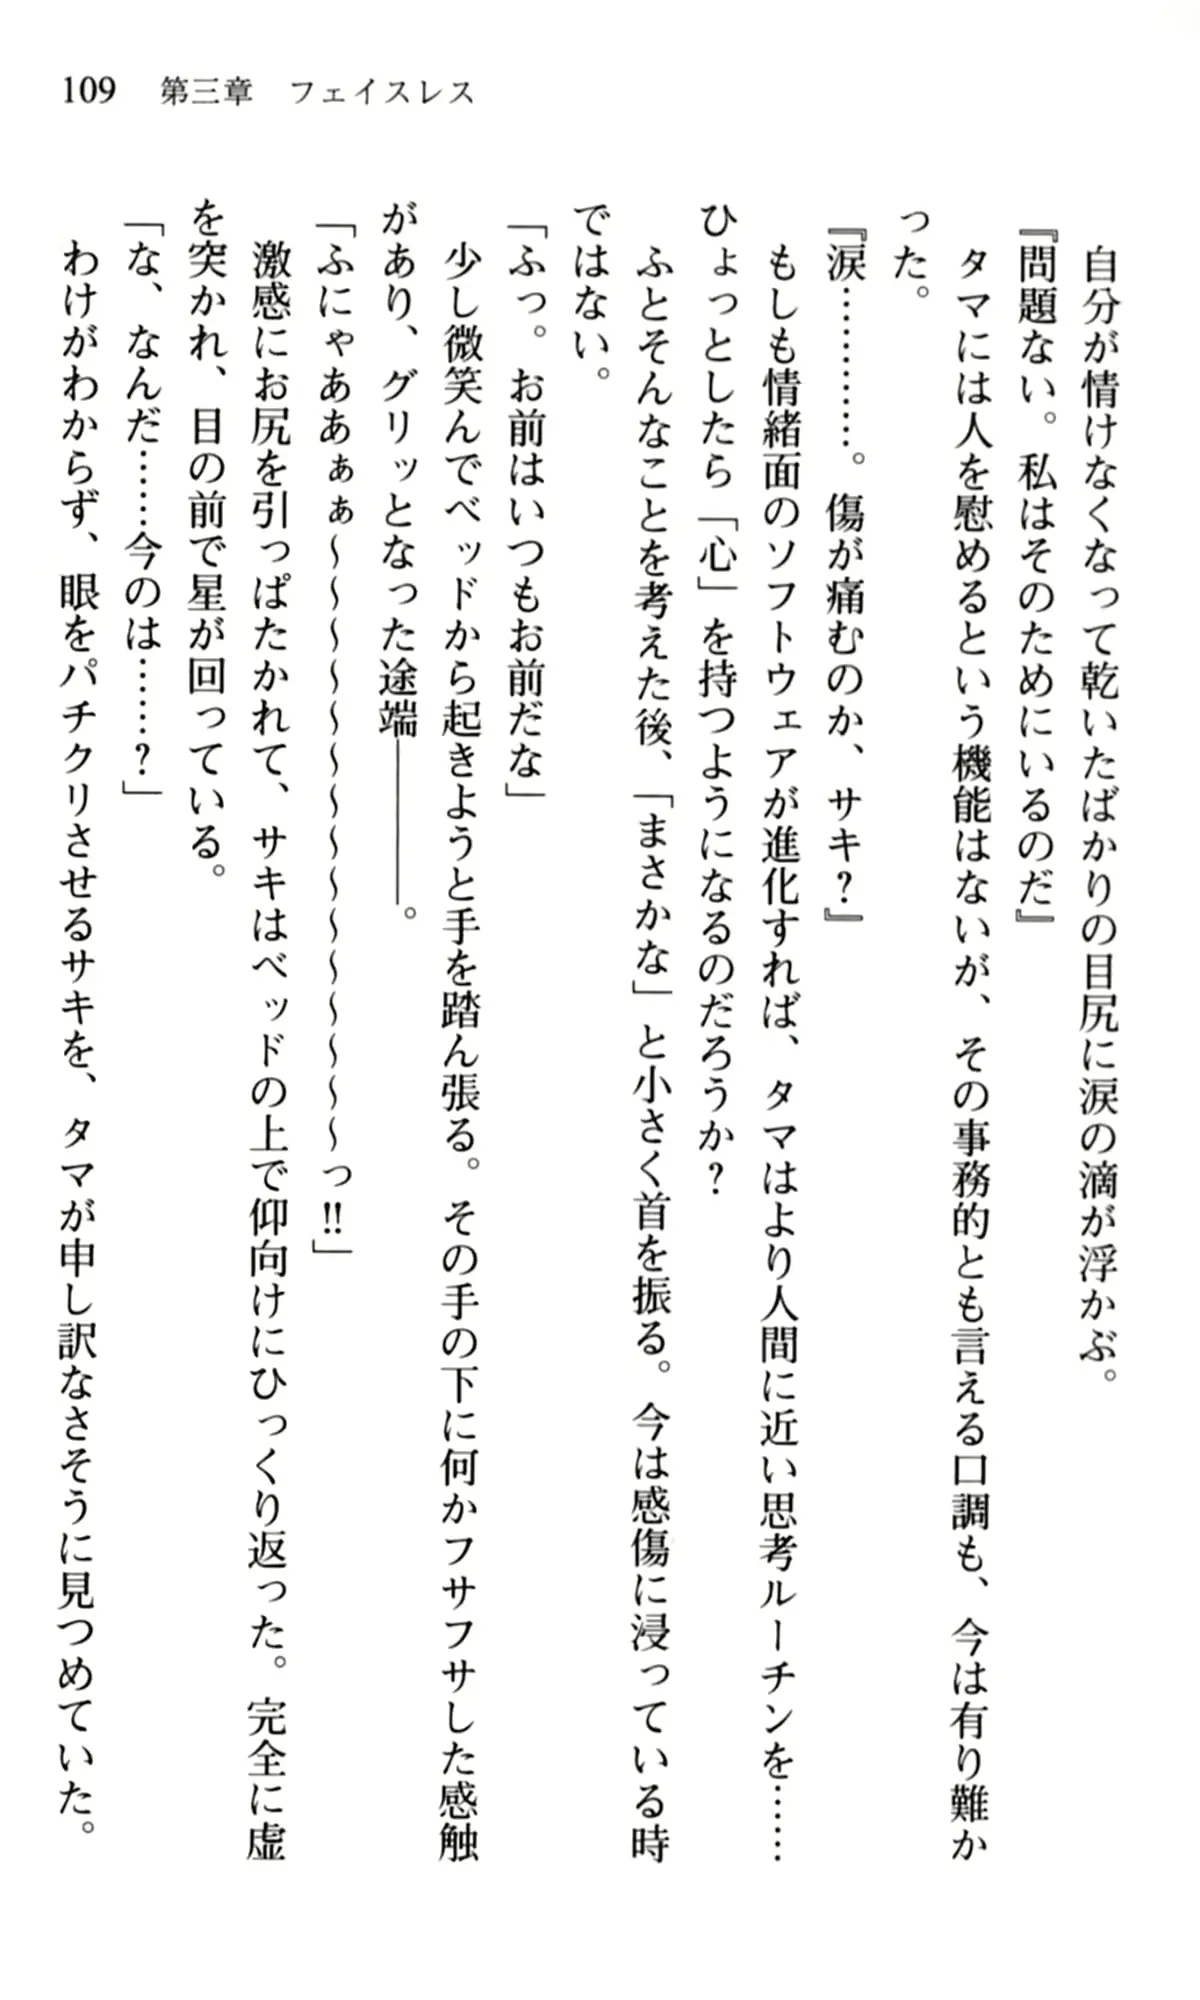 109　第三章　フェイスレス
　自分が情けなくなって乾いたばかりの目尻に涙の滴が浮かぶ。
『問題ない。私はそのためにいるのだ』
　タマには人を慰めるという機能はないが、その事務的とも言える口調も、今は有り難か
った。
『涙…………。傷が痛むのか、サキ？』
　もしも情緒面のソフトウェアが進化すれば、タマはより人間に近い思考ルーチンを……
ひょっとしたら「心」を持つようになるのだろうか？
　ふとそんなことを考えた後、「まさかな」と小さく首を振る。今は感傷に浸っている時
ではない。
「ふっ。お前はいつもお前だな」
　少し微笑んでベッドから起きようと手を踏ん張る。その手の下に何かフサフサした感触
があり、グリッとなった途端――――。
「ふにゃああぁぁ～～～～～～～～～～～～～～～っ!!」
　激感にお尻を引っぱたかれて、サキはベッドの上で仰向けにひっくり返った。完全に虚
を突かれ、目の前で星が回っている。
「な、なんだ……今のは……？」
　わけがわからず、眼をパチクリさせるサキを、タマが申し訳なさそうに見つめていた。